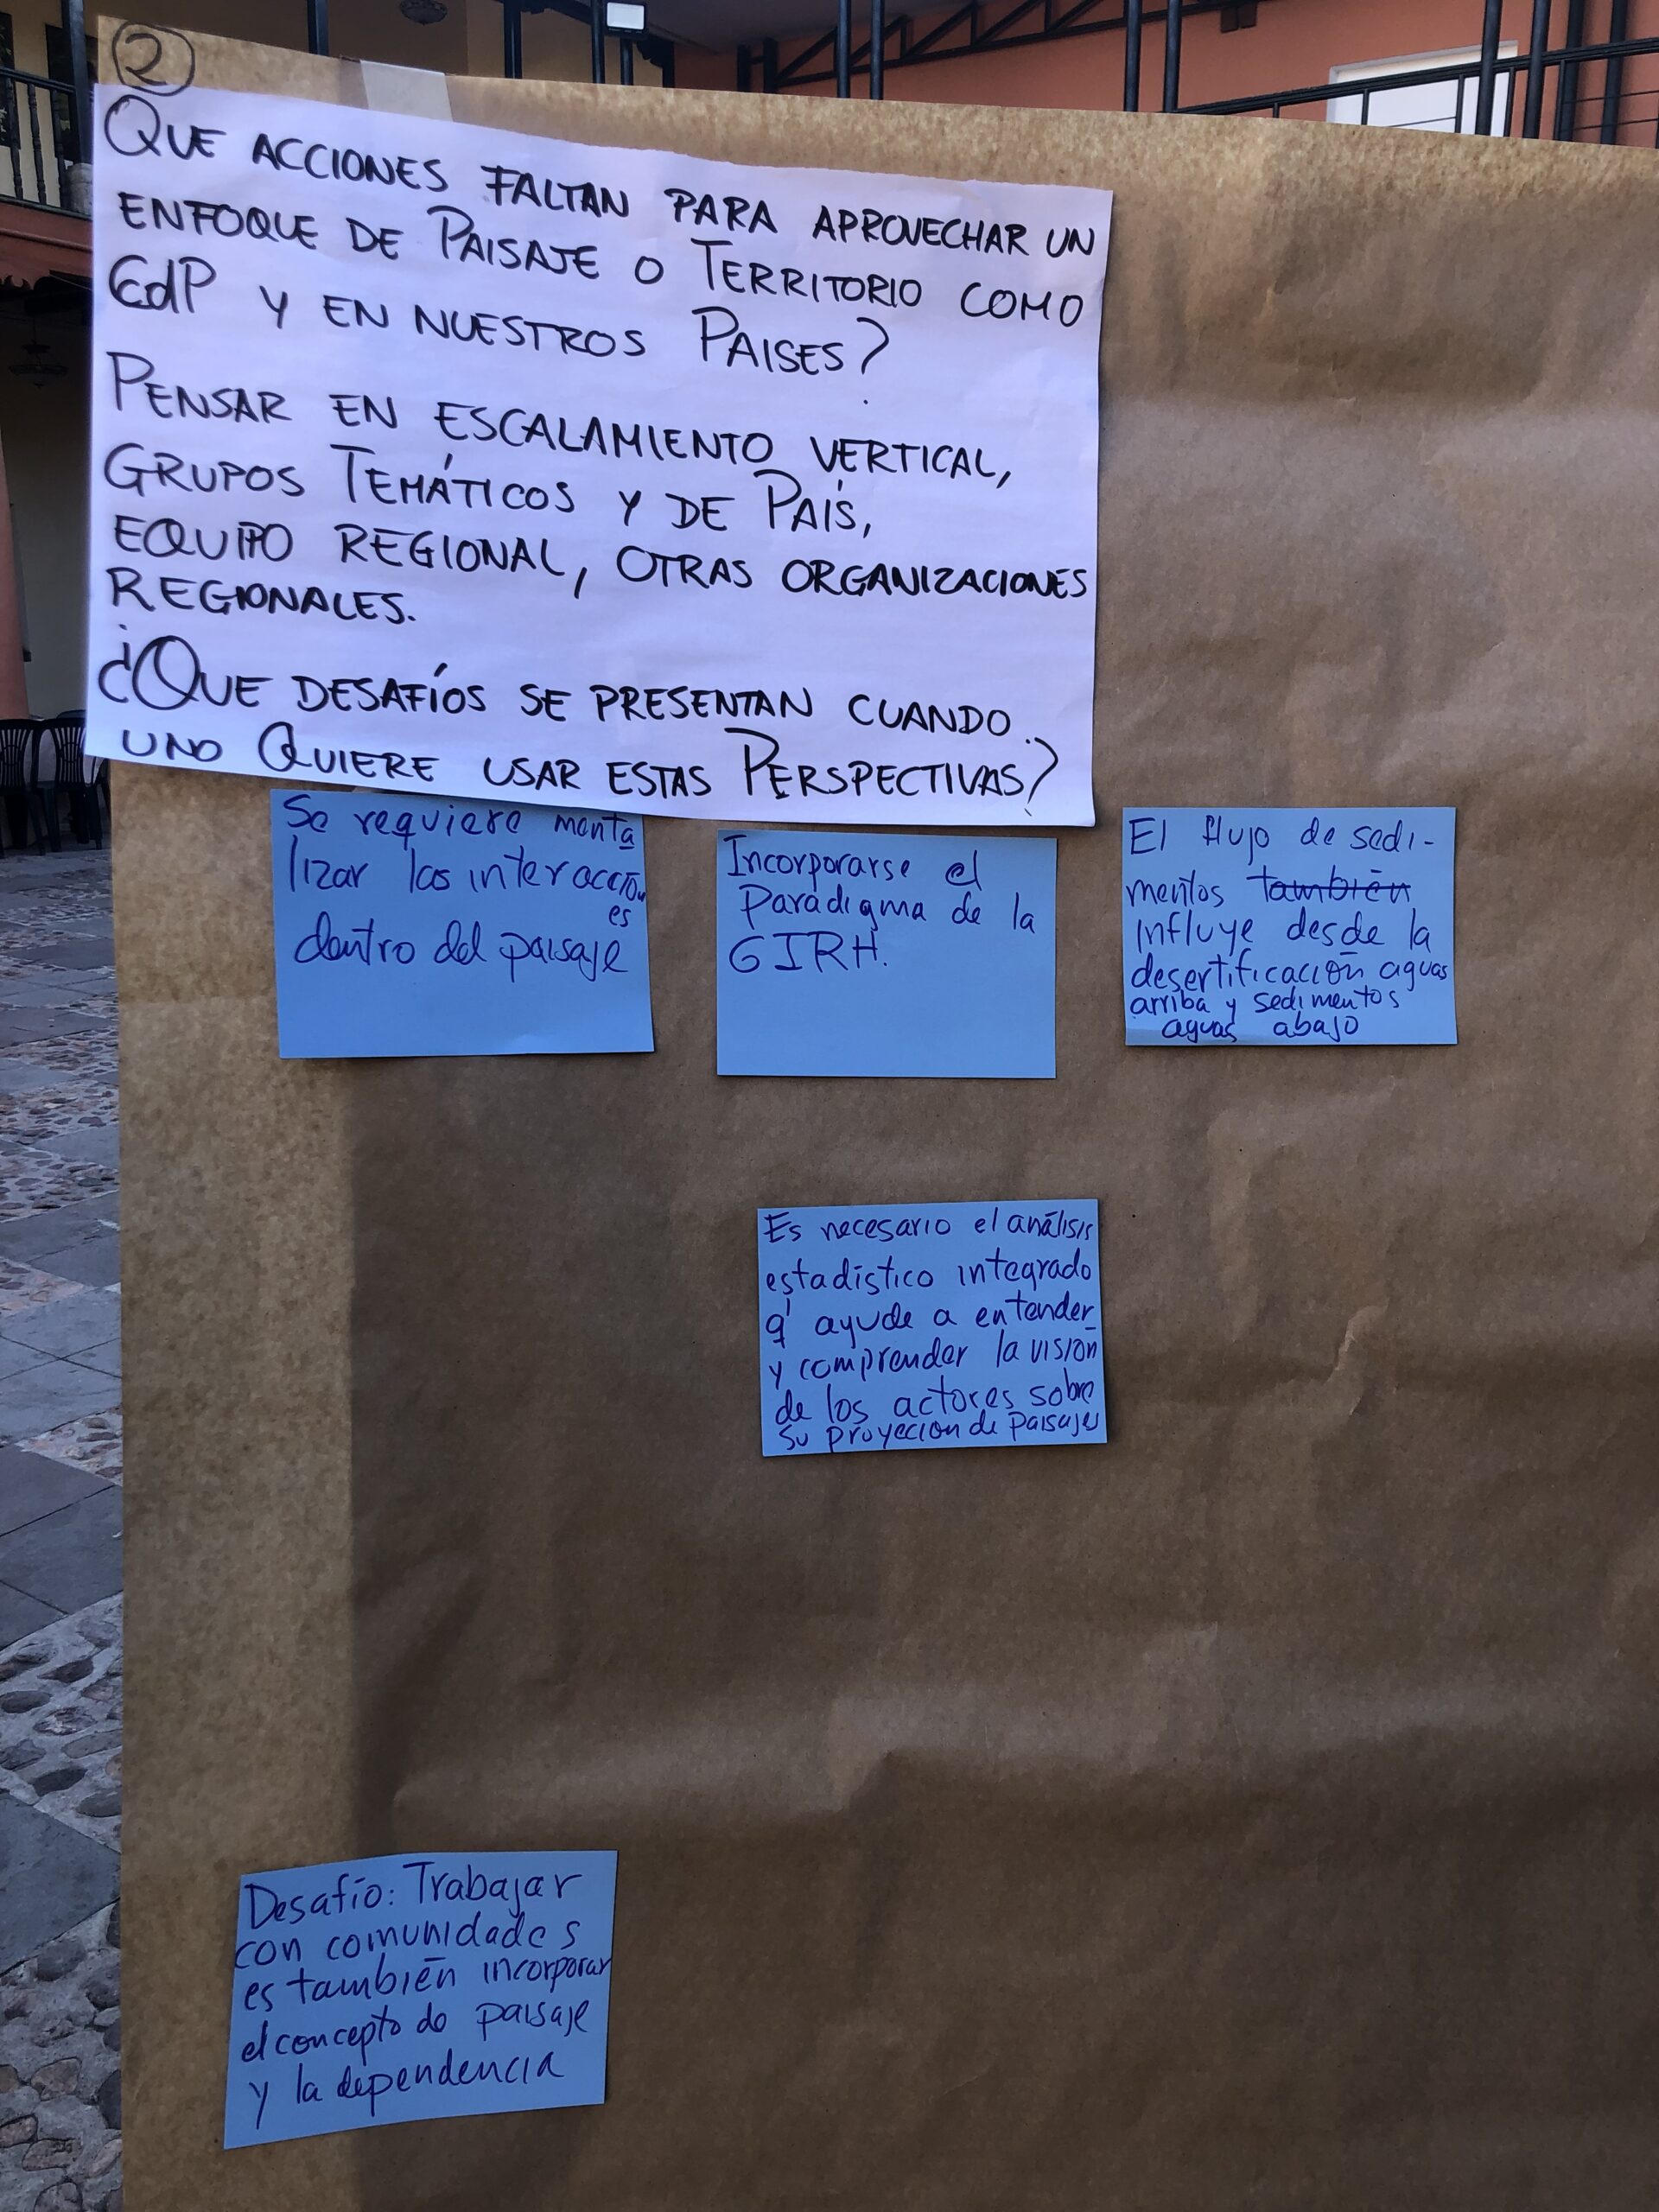 2
QUE ACCIONES FALTAN PARA APROVECHAR UN
ENFOQUE DE PAISAJE O TERRITORIO COMO
CdP Y EN NUESTROS PAISES?
PENSAR EN ESCALAMIENTO VERTICAL,
GRUPOS TEMÁTICOS Y DE PAÍS,
EQUIPO REGIONAL, OTRAS ORGANIZACIONES
REGIONALES.
¿QUE DESAFÍOS SE PRESENTAN CUANDO
UNO QUIERE USAR ESTAS PERSPECTIVAS?
Se requiere menta
lizar las interaccion
es
dentro del paisaje
Incorporarse el
Paradigma de la
GIRH.
El flujo de sedi-
mentos también
influye desde la
desertificación aguas
arriba y sedimentos
aguas abajo
Es necesario el análisis
estadístico integrado
q' ayude a entender
y comprender la visión
de los actores sobre
su proyección de paisajes
Desafío: Trabajar
con comunidades
es también incorporar
el concepto de paisaje
y la dependencia